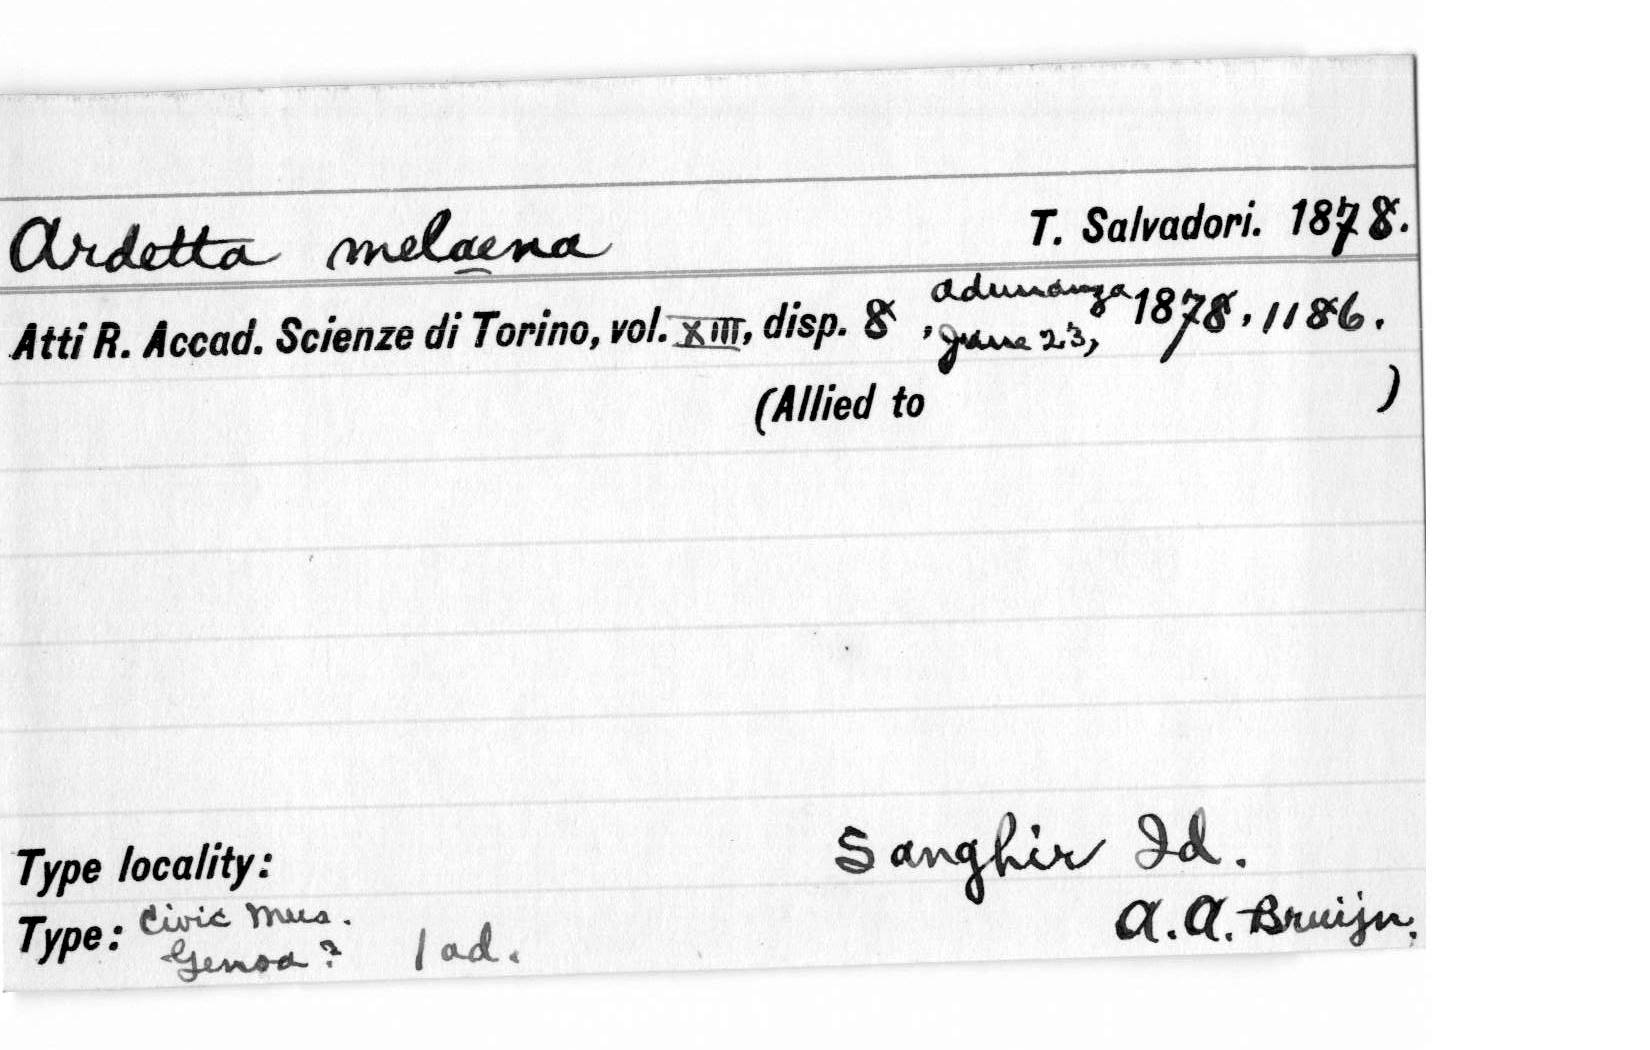 Ardetta melaena T. Salvadori. 1878.
Atti R. Accad. Scienze di Torino, vol. XIII, disp. 8 , adunanza June 23, 1878, 1186.
(Allied to )
Type locality: Sanghir Id.
Type: Civic Mus. Genoa? 1 ad. A. A. Bruijn.